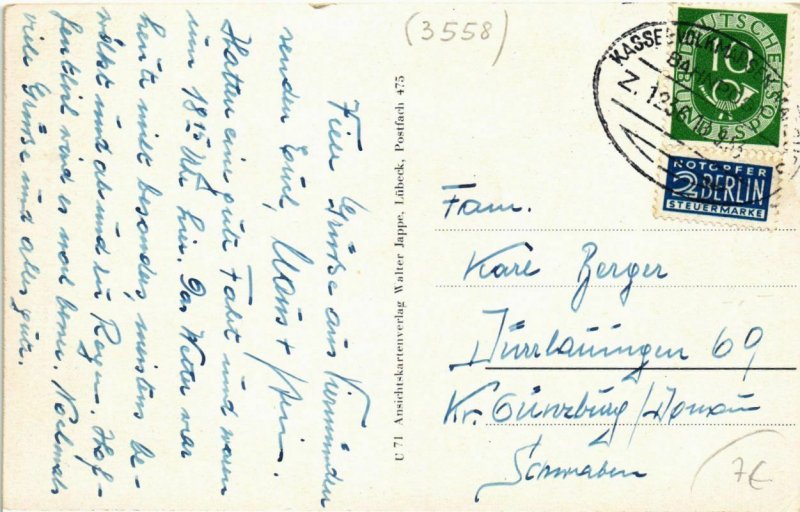 (3558)
Viele Grüße aus Tiermünden
senden Euch, Claus +
Hatten eine gute Fahrt und waren
um 18 15 Uhr hier. Das Wetter war
heute nicht besonders, meistens be-
wölkt und ab und zu Regen. Hof-
fentlich wird es noch besser. Nochmals
viele Grüße und alles gute.
U 71 Ansichtskartenverlag Walter Jappe, Lübeck, Postfach 475
DEUTSCHE
BUNDESPOST
10
KASSEL
BAHNPOST
Z. 1256
NOTOPFER
2 BERLIN
STEUERMARKE
Fam.
Karl Berger
Dürrlauingen 69
Kr. Günzburg/Donau
Schwaben
7€